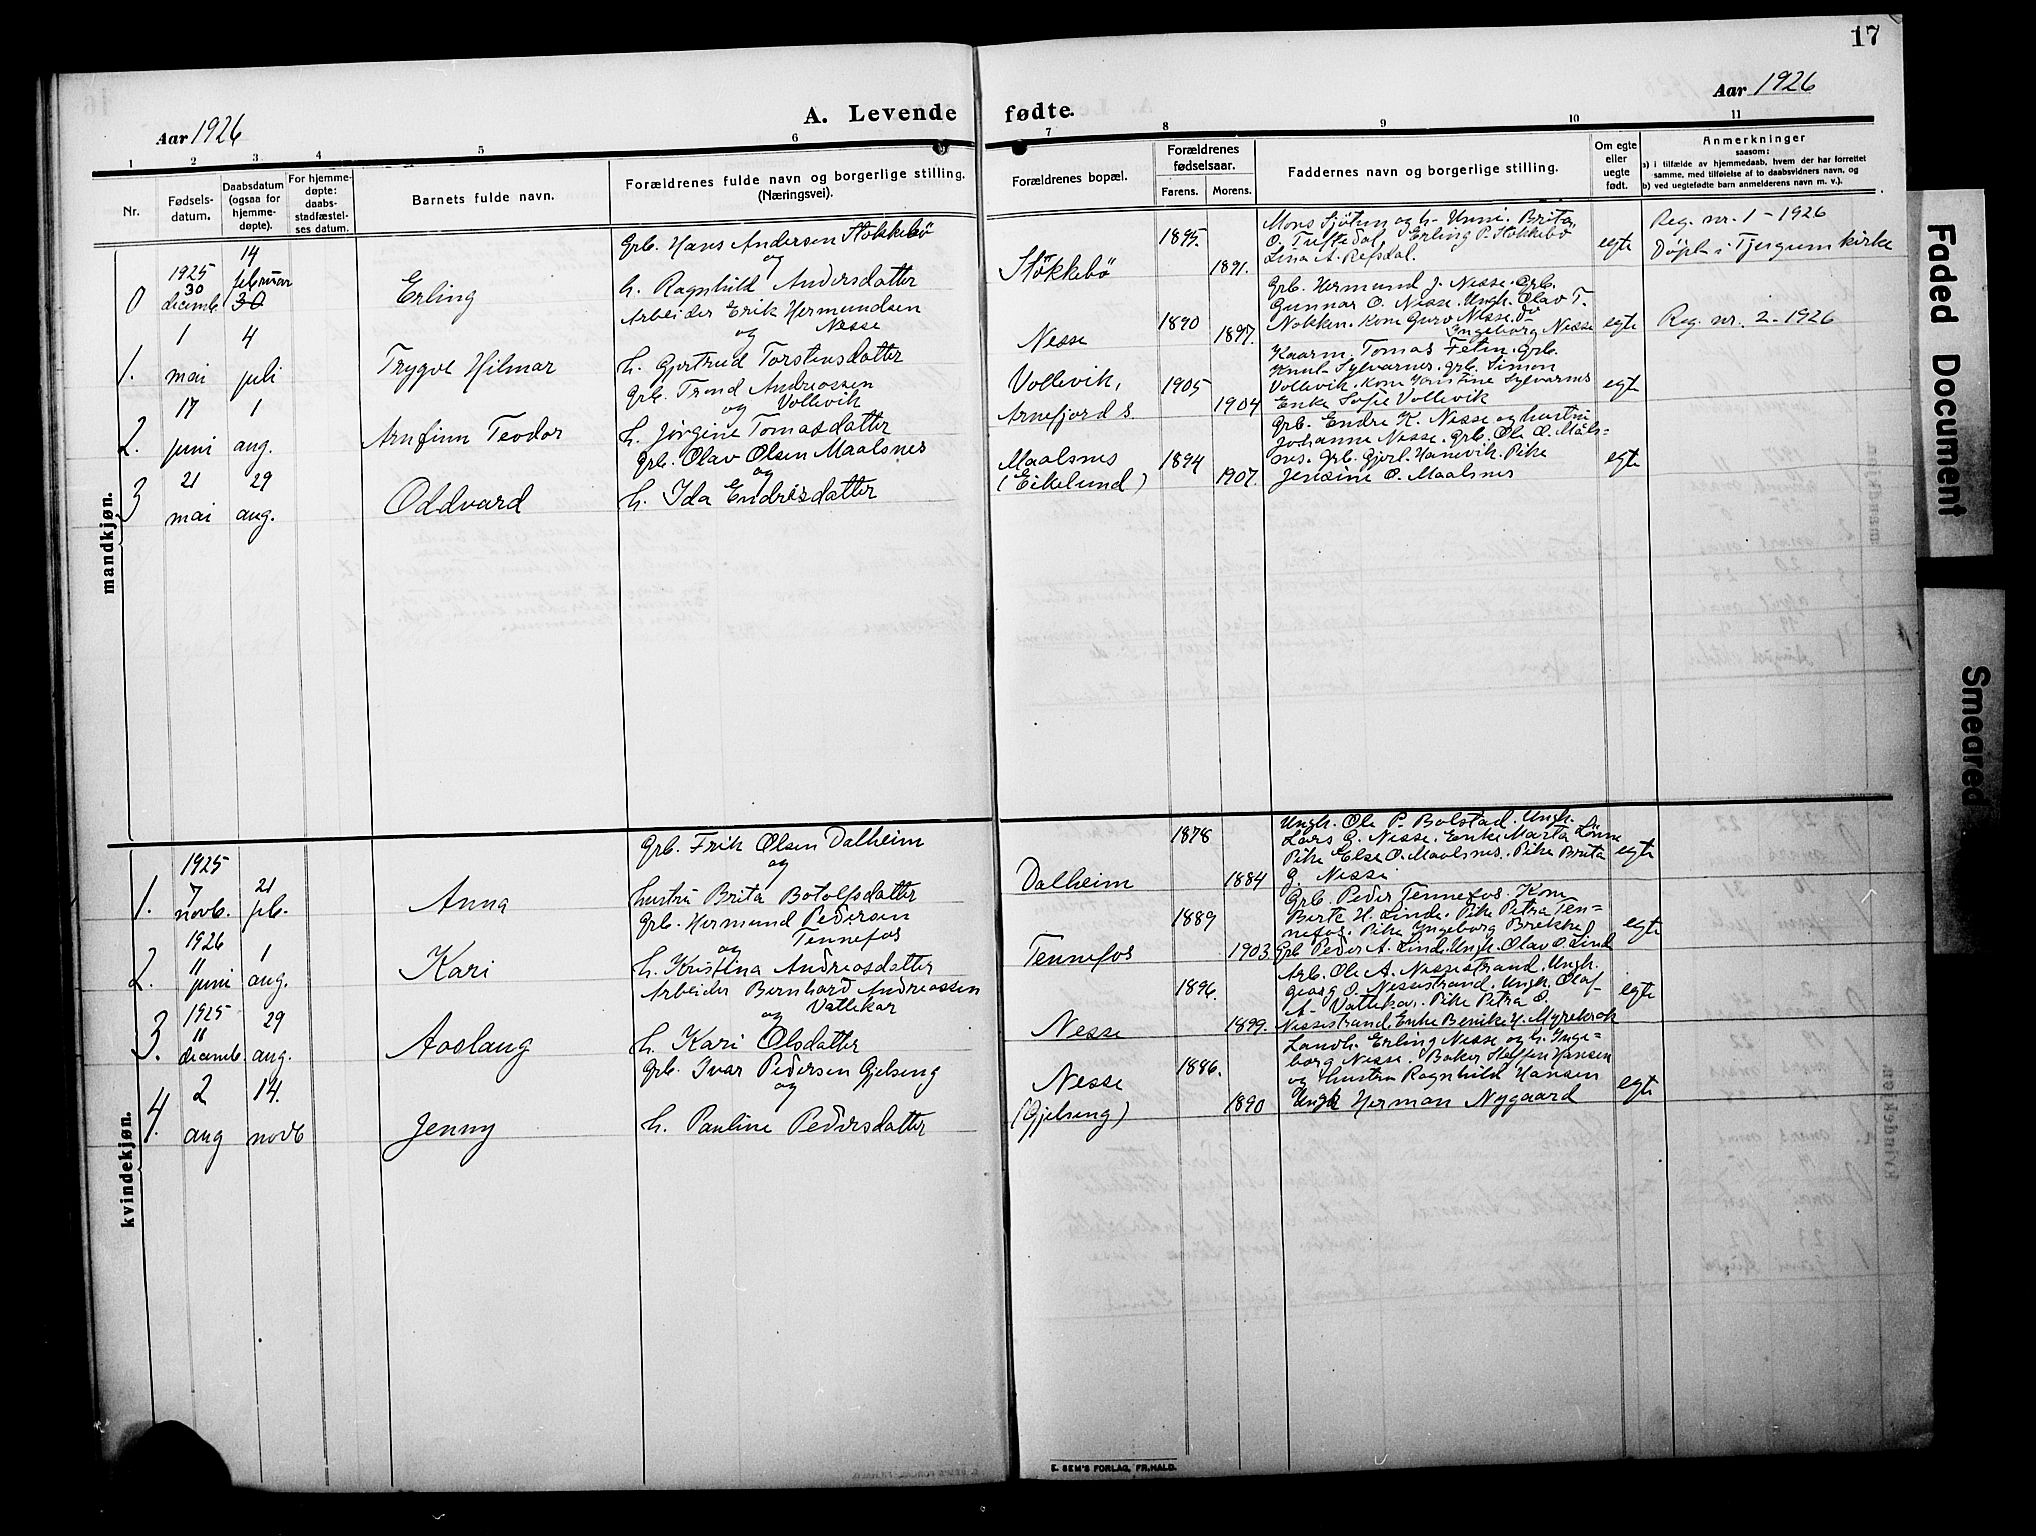 17
Aar 1926
A. Levende fødte.
Aar 1926
1 2 3 4 5 6 7 8 9 10 11
Nr.
Fødsels-
datum.
Daabsdatum
(ogsaa for
hjemme-
døpte).
For hjemme-
døpte:
daabs-
stadfæstel-
ses datum.
Barnets fulde navn.
Forældrenes fulde navn og borgerlige stilling.
(Næringsvei).
Forældrenes bopæl.
Forældrenes
fødselsaar.
Farens. Morens.
Faddernes navn og borgerlige stilling.
Om egte
eller
uegte
født.
Anmerkninger
saasom:
a) i tilfælde av hjemmedaab, hvem der har forrettet
samme, med tilføielse af to daabsvidners navn, og
b) ved uegtefødte barn anmelderens navn m. v.).
mandkjøn.
0
1925
30
decemb.
14
februar
30
Erling
Grb. Hans Andersen Stokkebö
og
h. Ragnhild Andersdatter
Stökkebö
1895.
1891.
Mons Sjötun og h. Unni. Brita
O. Tuftedal, Erling P. Stokkebö
Lina A. Refsdal.
egte
Reg. nr. 1 - 1926
Döpt i Tjugum kirke
1.
1
mai
4
juli
Trygve Hilmar
Arbeider Erik Hermundsen
og Nesse
h. Gjertrud Torsteinsdatter
Nesse
1890
1897.
Grb. Hermund J. Nesse. Grb.
Gunnar O. Nesse. Ungk. Olav T.
Nokken. Kone Guro Nesse. do
Ingeborg Nesse
egte
Reg. nr. 2 - 1926
2.
17
juni
1
aug.
Arnfinn Teodor
Grb. Trond Andreassen
og Vollevik
h. Jörgine Tomasdatter
Vollevik,
Arnefjord s.
1905
1904
Kaarm. Tomas Fetin. Grb.
Knut Sylvarnes. Grb. Simon
Vollevik. Kone Kristine Sylvarnes
Enke Sofie Vollevik
egte
3
21
mai
29
aug.
Oddvard
Grb. Olav Olsen Maalsnes
og
h. Ida Endresdatter
Maalsnes
(Eikelund)
1894
1907.
Grb. Endre K. Nesse og hustru
Johanne Nesse. Grb. Ole O. Måls=
nes. Grb. Gjerl. Hanevik. Pike
Jensine O. Maalsnes
egte
kvindekjøn.
1.
1925
7
novb.
21
feb.
Anna
Grb. Erik Olsen Dalheim
og
hustru Brita Botolfsdatter
Dalheim
1878
1884
Ungk. Ole P. Bolstad. Ungk.
Lars G. Nesse. Enke Marta Lönne
Pike Else O. Maalsnes. Pike Brita
G. Nesse
egte
2.
1926
11
juni
1
aug.
Kari
Grb. Hermund Pedersen
og Tennefos
h. Kristina Andreasdatter
Tennefos
1889
1903.
Grb. Peder Tennefos. Kone
Berte H. Linde. Pike Petra Ten=
nefos. Pike Ingeborg Brekke
Grb Peder A. Linde. Ungk. Olav O. Linde
egte
3.
1925
11
decemb.
29
aug.
Aaslaug
Arbeider Bernhard Andreassen
og Vattekar
h. Kari Olsdatter
Nesse
1896.
1899.
Arb. Ole A. Nessestrand. Ungk.
Georg O. Nessestrand. Ungk. Olaf
A. Vattekar. Pike Petra O.
Nessestrand. Enke Berike H. Myrekrok
egte
4.
2
aug
14.
novb
Jenny
Grb. Ivar Pedersen Gjelseng
og
h. Pauline Pedersdatter
Nesse
(Gjelseng)
1886.
1890
Landh. Erling Nesse og h. Inge=
borg Nesse. Baker Steffen Hansen
og hustru Ragnhild Hansen
Ungk Herman Nygaard
egte
E. SEM'S FORLAG, FR.HALD.
Faded Document
Smeared